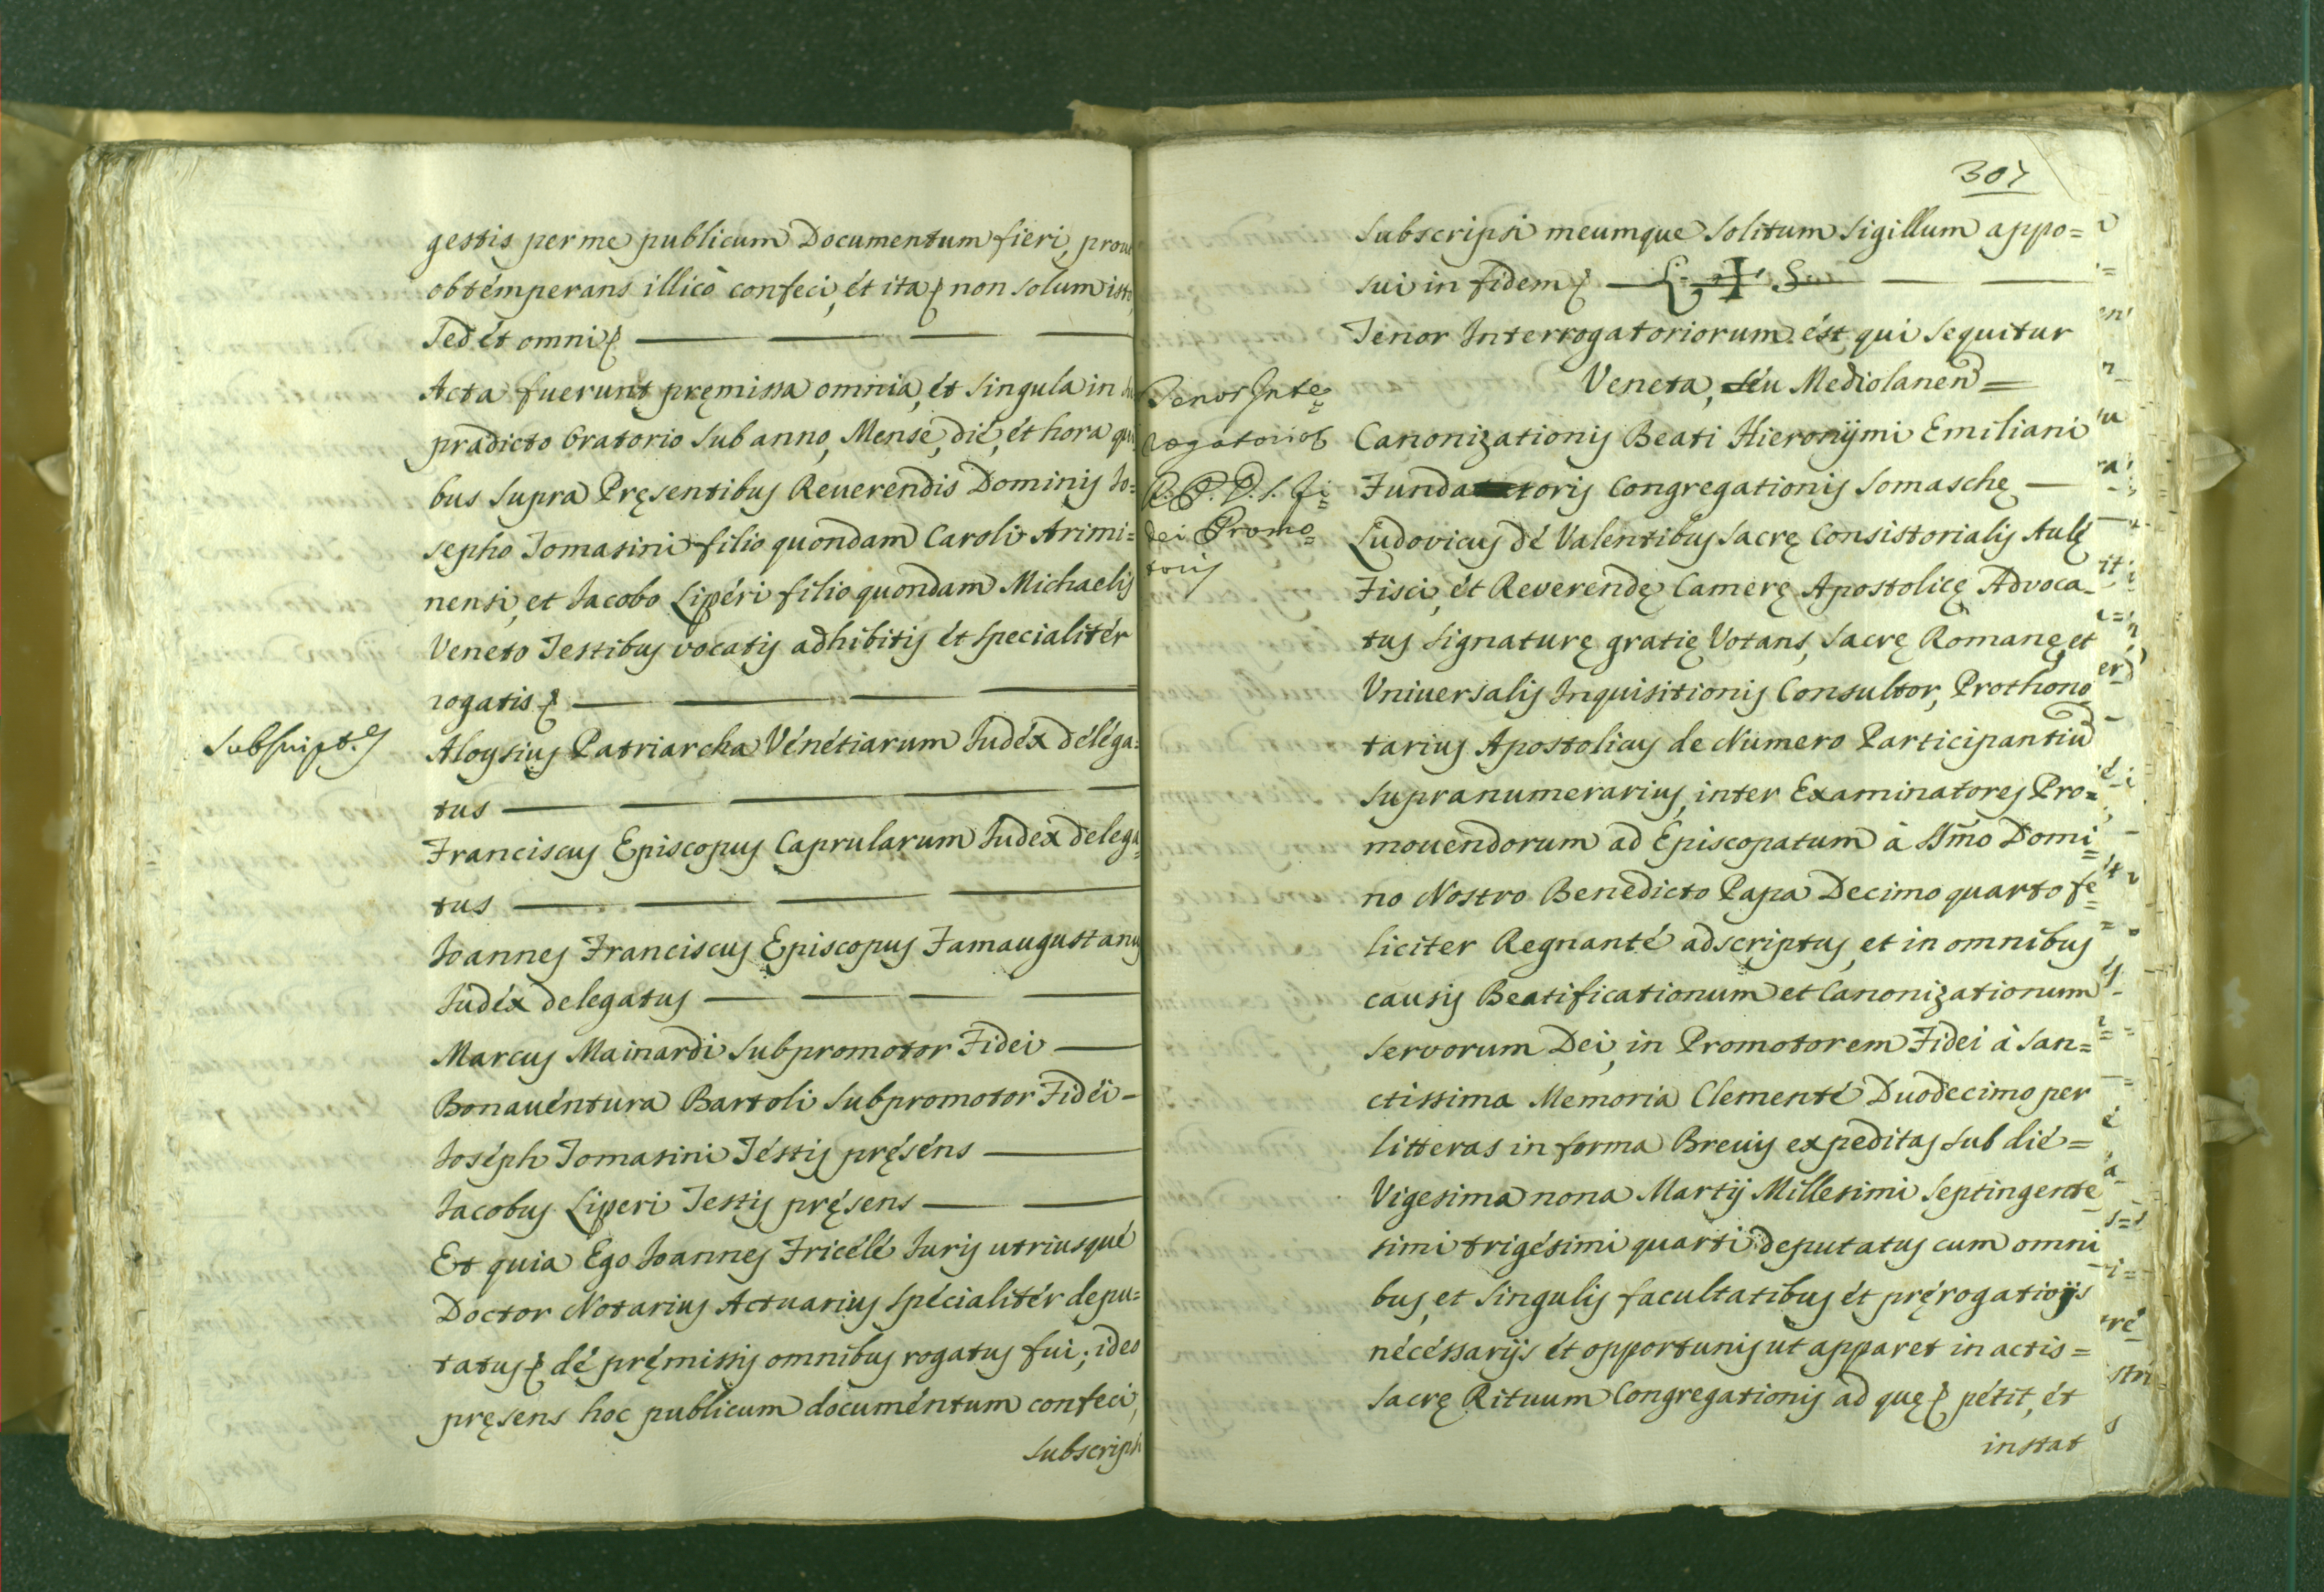 gestis per me publicum Documentum fieri, prout
obtémperans illicò confeci, ét ita non solum isto,
sed ét omni
Acta fuerunt pręmissa omnia, ét singula in
prædicto Oratorio sub anno, Mense, dié, ét hora qui
bus supra Pręsentibus Reuerendis Dominis Io=
sepho Tomasini filio quondam Caroli Arimi=
nensi, et Iacobo Lipéri filio quondam Michaelis
Veneto Testibus vocatis adhibitis ét specialitér
rogatis
Subscript.es
Aloysius Patriarcha Vénétiarum Iudéx déléga=
tus
Franciscus Episcopus Caprularum Iudex delega=
tus
Ioannes Franciscus Episcopus Famaugustanus
Iudéx delegatus
Marcus Mainardi Subpromotor Fidei
Bonauéntura Bartoli Subpromotor Fidéi -
Ioséph Tomasini Téstis pręséns
Iacobus Liperi Testis pręsens
Et quia Ego Ioannes Fricélé Iuris utriusqué
Doctor Notarius Actuarius spécialitér depu=
tatus dé pręmissis omnibus rogatus fui; ideo
pręsens hoc publicum documéntum confeci,
subscripsi
307
Subscripsi meumque solitum sigillum appo=
sui in fidem L. ✠ S.
Tenor Interrogatoriorum ést qui sequitur
Veneta, séu Mediolanen =
Tenor Inte=
rogatorior
R. P. D. S. Fi=
dei Promo=
toris
Canonizationis Beati Hieronymi Emiliani
Fundatoris Congregationis Somaschę
Ludovicus dé Valentibus Sacrę Consistorialis Aulę
Fisci, ét Reverendę Camerę Apostolicę Advoca_
tus signaturę gratię Votans, Sacrę Romanę, et
Vniuersalis Inquisitionis Consultor, Prothono
tarius Apostolicus de Numero Participantiũ
supranumerarius, inter Examinatores Pro=
mouendorum ad Episcopatum à Ssmo Domi=
no Nostro Benedicto Papa Decimo quarto fe=
liciter Regnanté adscriptus, et in omnibus
causis Beatificationum et Canonizationum
servorum Dei, in Promotorem Fidei à San=
ctissima Memoria Clementé Duodecimo per
litteras in forma Brevis expeditas sub dié =
Vigesima nona Martij Millesimi septingente
simi trigésimi quarti deputatus cum omni
bus, et singulis facultatibus ét pręrogativis
nécéssarijs ét opportunis ut apparet in actis =
Sacrę Rituum Congregationis ad quę pétit, ét
instat